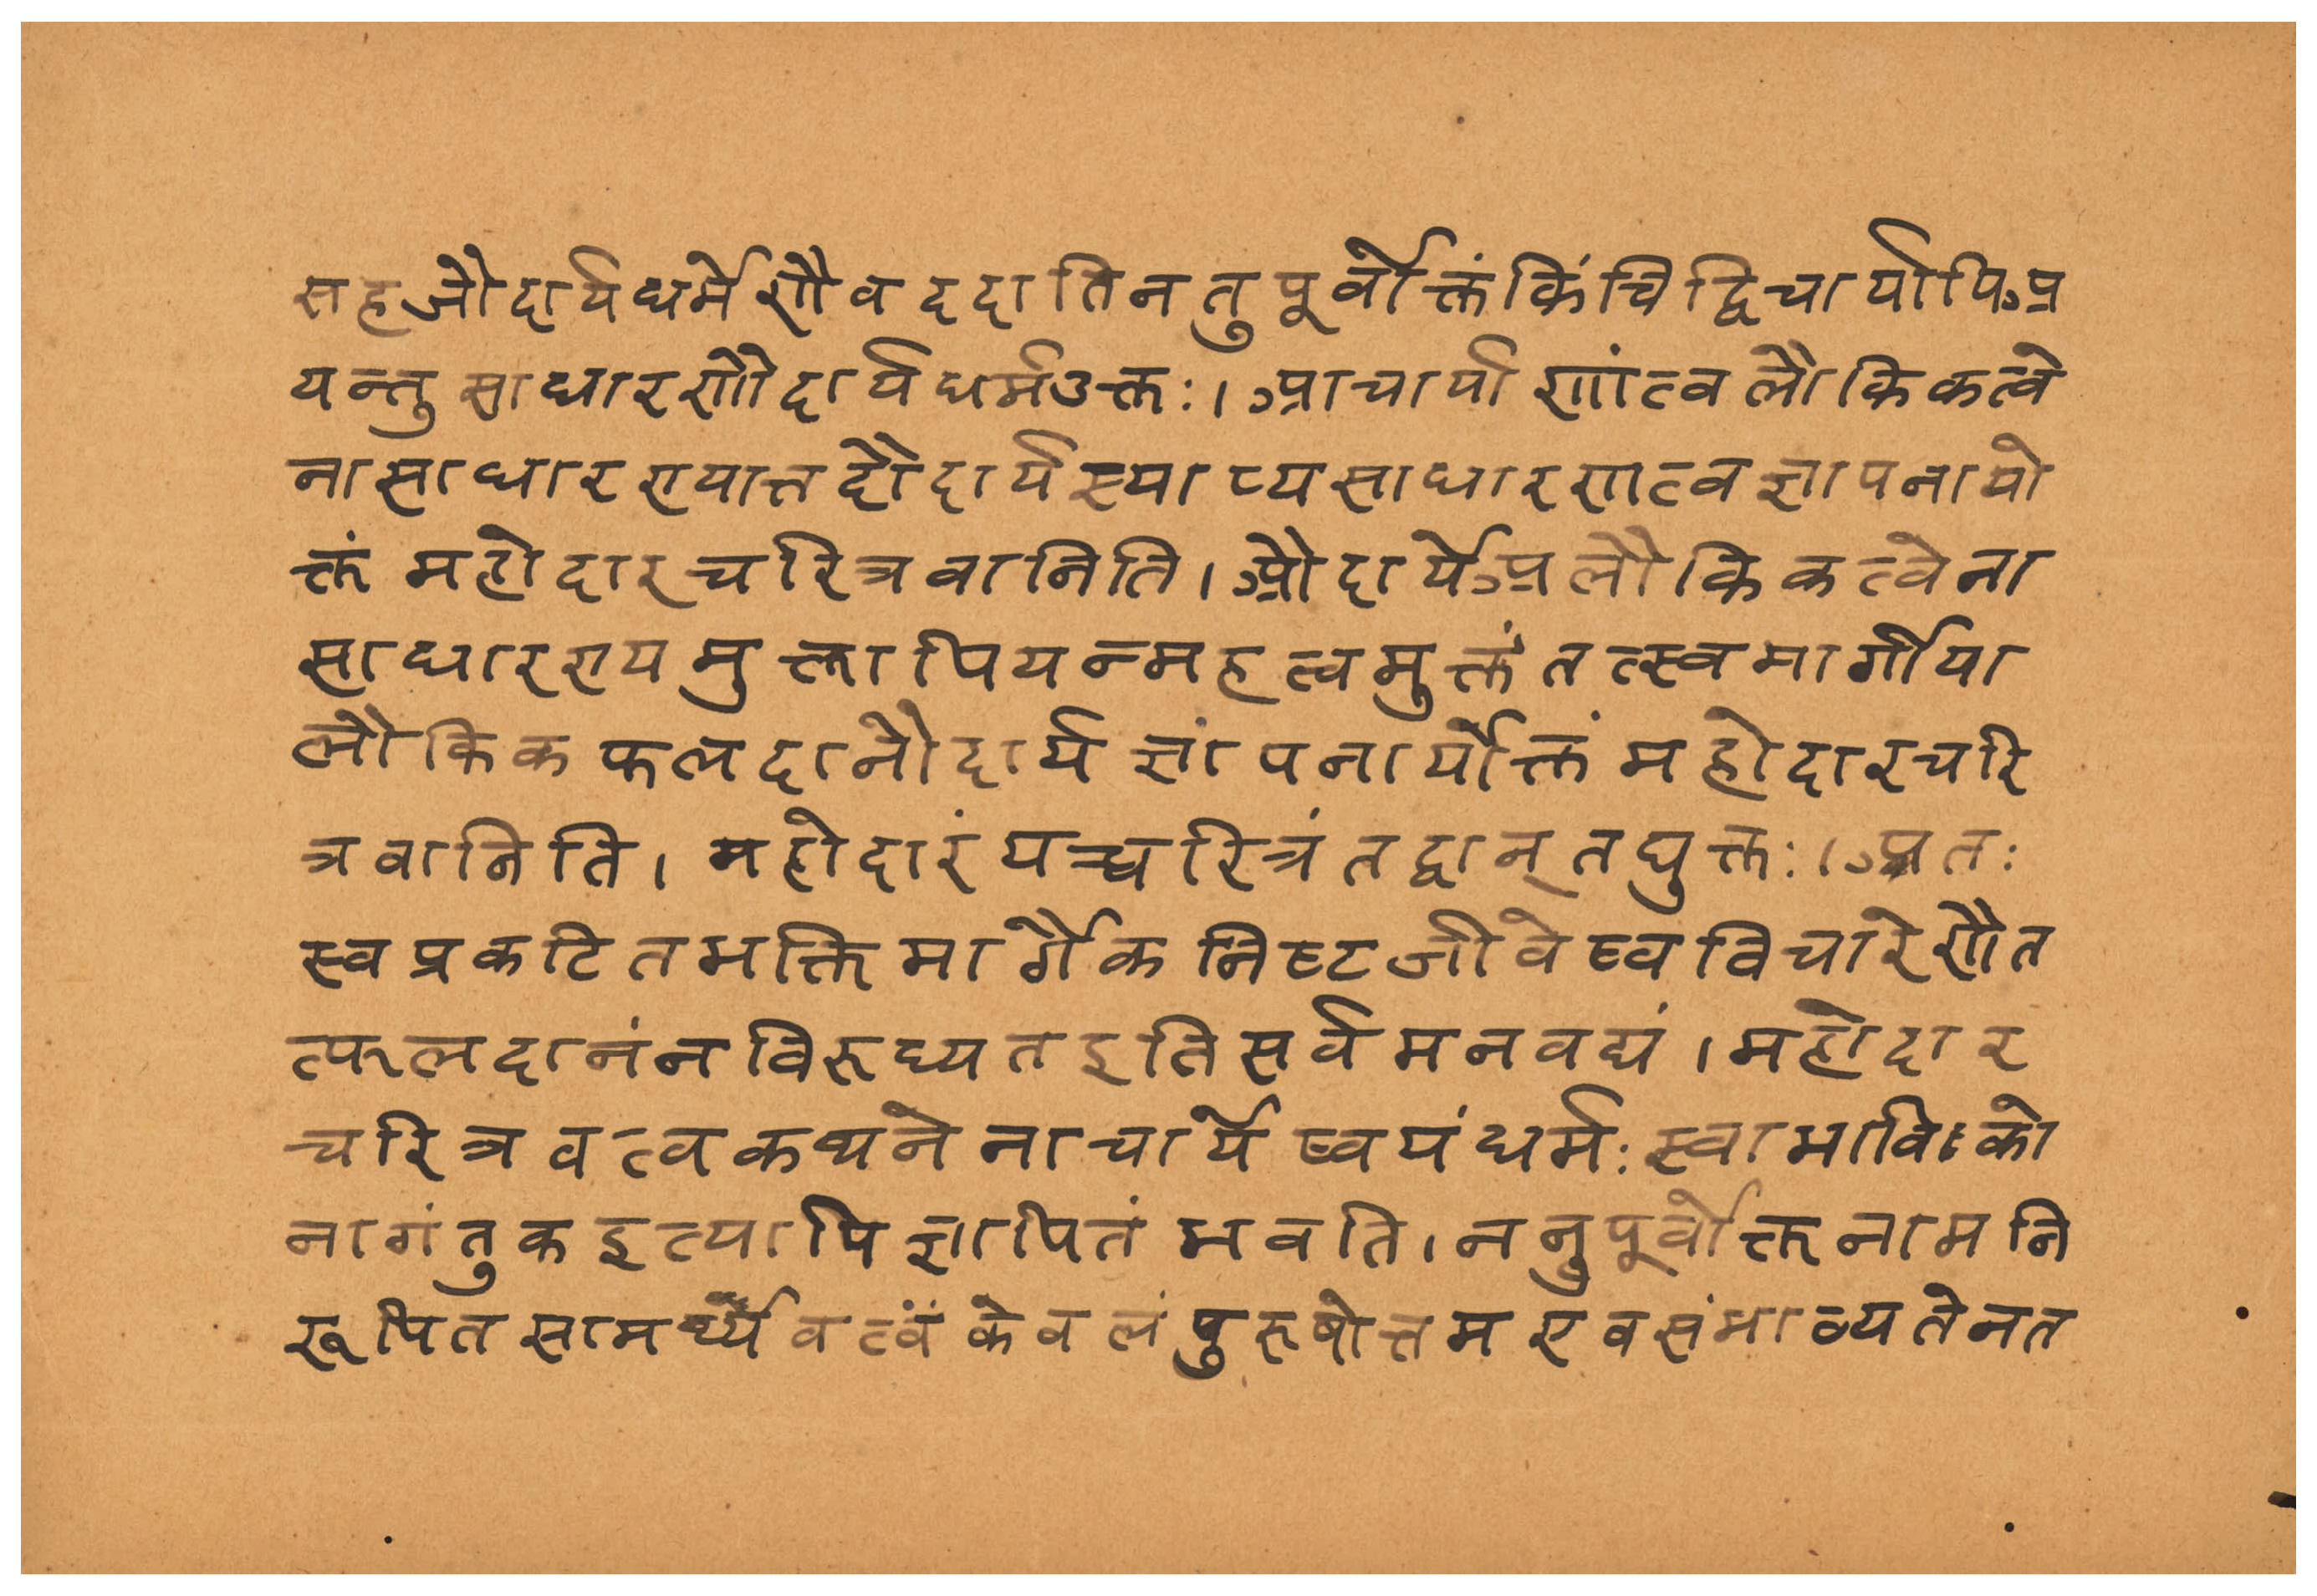 सहजौदार्यधर्मेणैव ददाति न तु पूर्वोक्तं किंचिद्विचार्यापि अ
यन्तु साधारणौदार्यधर्म उक्तः। आचार्याणां त्वलौकिकत्वे
नासाधारण्यात्तदौदार्यस्याप्यसाधारणत्वज्ञापनायो
क्तं महोदारचरित्रवानिति। औदार्ये अलौकिकत्वेना
साधारण्यमुक्तापि यन्महत्वमुक्तं तत्स्वमार्गीया
लौकिकफलदानौदार्य ज्ञापनार्योक्तं महोदारचरि
त्रवानिति। महोदारं यच्चरित्रं तद्वान् तद्युक्तः। अतः
स्वप्रकटितभक्तिमार्गैकनिष्टजीवेष्वविचारेणैत
त्फलदानं न विरुध्यत इति सर्वमनवद्यं। महोदार
चरित्रवत्वकथनेनाचार्येष्वयं धर्मः स्वाभाविको
नागंतुक इत्यापि ज्ञापितं भवति। ननु पूर्वोक्तनामनि
रूपितसामर्थ्यवत्वं केवलं पुरुषोत्तम एव संभाव्यते न त